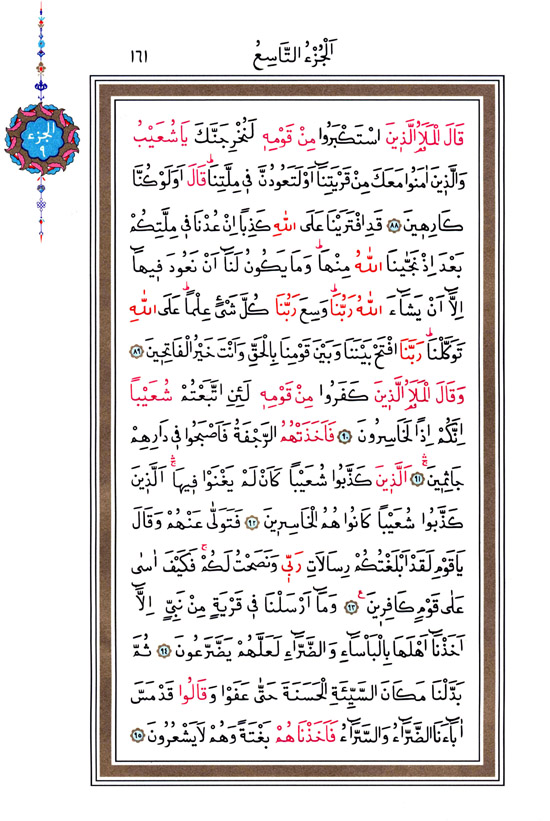 اَلْجُزْءُ التَّاسِعُ
١٦١
الجزء
٩
قَالَ الْمَلَاُ الَّذ۪ينَ اسْتَكْبَرُوا مِنْ قَوْمِه۪ لَنُخْرِجَنَّكَ يَاشُعَيْبُ
وَالَّذ۪ينَ اٰمَنُوا مَعَكَ مِنْ قَرْيَتِنَٓا اَوْ لَتَعُودُنَّ ف۪ي مِلَّتِنَاۜ قَالَ اَوَلَوْ كُنَّا
كَارِه۪ينَ ﴿٨٨﴾ قَدِ افْتَرَيْنَا عَلَى اللّٰهِ كَذِبًا اِنْ عُدْنَا ف۪ي مِلَّتِكُمْ
بَعْدَ اِذْ نَجّٰينَا اللّٰهُ مِنْهَاۜ وَمَا يَكُونُ لَنَٓا اَنْ نَعُودَ ف۪يهَٓا
اِلَّٓا اَنْ يَشَٓاءَ اللّٰهُ رَبُّنَاۜ وَسِعَ رَبُّنَا كُلَّ شَيْءٍ عِلْمًاۜ عَلَى اللّٰهِ
تَوَكَّلْنَاۜ رَبَّنَا افْتَحْ بَيْنَنَا وَبَيْنَ قَوْمِنَا بِالْحَقِّ وَاَنْتَ خَيْرُ الْفَاتِح۪ينَ ﴿٨٩﴾
وَقَالَ الْمَلَاُ الَّذ۪ينَ كَفَرُوا مِنْ قَوْمِه۪ لَئِنِ اتَّبَعْتُمْ شُعَيْبًا
اِنَّكُمْ اِذًا لَخَاسِرُونَ ﴿٩٠﴾ فَاَخَذَتْهُمُ الرَّجْفَةُ فَاَصْبَحُوا ف۪ي دَارِهِمْ
جَاثِم۪ينَۚۛ ﴿٩١﴾ اَلَّذ۪ينَ كَذَّبُوا شُعَيْبًا كَاَنْ لَمْ يَغْنَوْا ف۪يهَاۚۛ اَلَّذ۪ينَ
كَذَّبُوا شُعَيْبًا كَانُوا هُمُ الْخَاسِر۪ينَ ﴿٩٢﴾ فَتَوَلّٰى عَنْهُمْ وَقَالَ
يَاقَوْمِ لَقَدْ اَبْلَغْتُكُمْ رِسَالَاتِ رَبّ۪ي وَنَصَحْتُ لَكُمْۚ فَكَيْفَ اٰسٰى
عَلٰى قَوْمٍ كَافِر۪ينَ۟ ﴿٩٣﴾ وَمَٓا اَرْسَلْنَا ف۪ي قَرْيَةٍ مِنْ نَبِيٍّ اِلَّٓا
اَخَذْنَٓا اَهْلَهَا بِالْبَأْسَٓاءِ وَالضَّرَّٓاءِ لَعَلَّهُمْ يَضَّرَّعُونَ ﴿٩٤﴾ ثُمَّ
بَدَّلْنَا مَكَانَ السَّيِّئَةِ الْحَسَنَةَ حَتّٰى عَفَوْا وَقَالُوا قَدْ مَسَّ
اٰبَٓاءَنَا الضَّرَّٓاءُ وَالسَّرَّٓاءُ فَاَخَذْنَاهُمْ بَغْتَةً وَهُمْ لَا يَشْعُرُونَ ﴿٩٥﴾